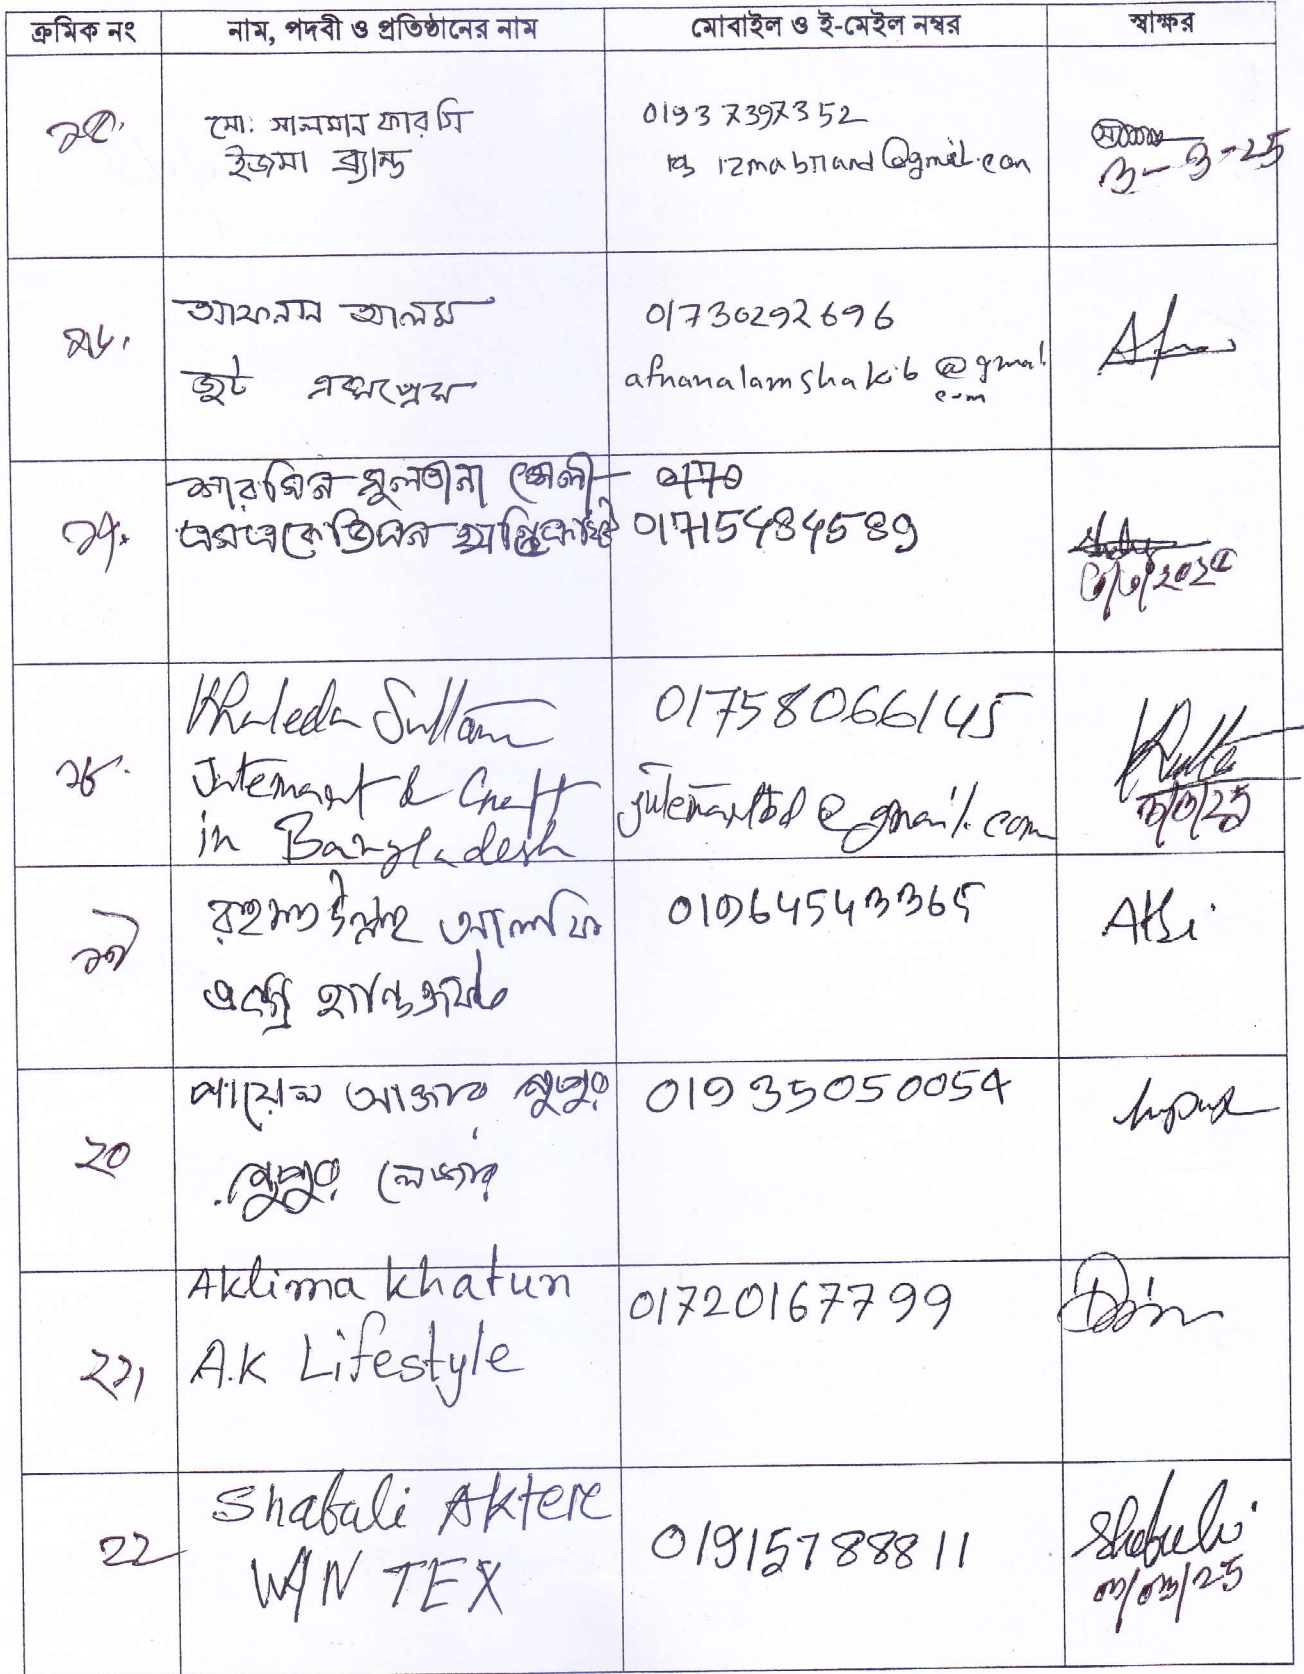 ক্রমিক নং
নাম, পদবী ও প্রতিষ্ঠানের নাম
মোবাইল ও ই-মেইল নম্বর
স্বাক্ষর
১৫.
মো: সালমান ফারসি
ইজমা ব্র্যান্ড
01937397352
izmabrand@gmail.com
৩-৩-25
১৬.
আফনান আলম
জুট এক্সপ্রেস
01730292696
afnanalamshakib@gmail
com
১৭.
শারমিন সুলতানা শেলী
0170
01715484589
৩/৩/২০২৫
১৮.
Khaleda Sultana
Jutemart & Craft
in Bangladesh
01758066145
jutemartbd@gmail.com
৩/৩/25
১৯
রহমত উল্লাহ আলফি
01964543365
২০
পায়েল আক্তার নুপুর
নুপুর লেদার
01935050054
nupur
২১।
Aklima Khatun
A.K Lifestyle
01720167799
22
Shafali Akter
WIN TEX
01915788811
Shafali
৩/০৩/25